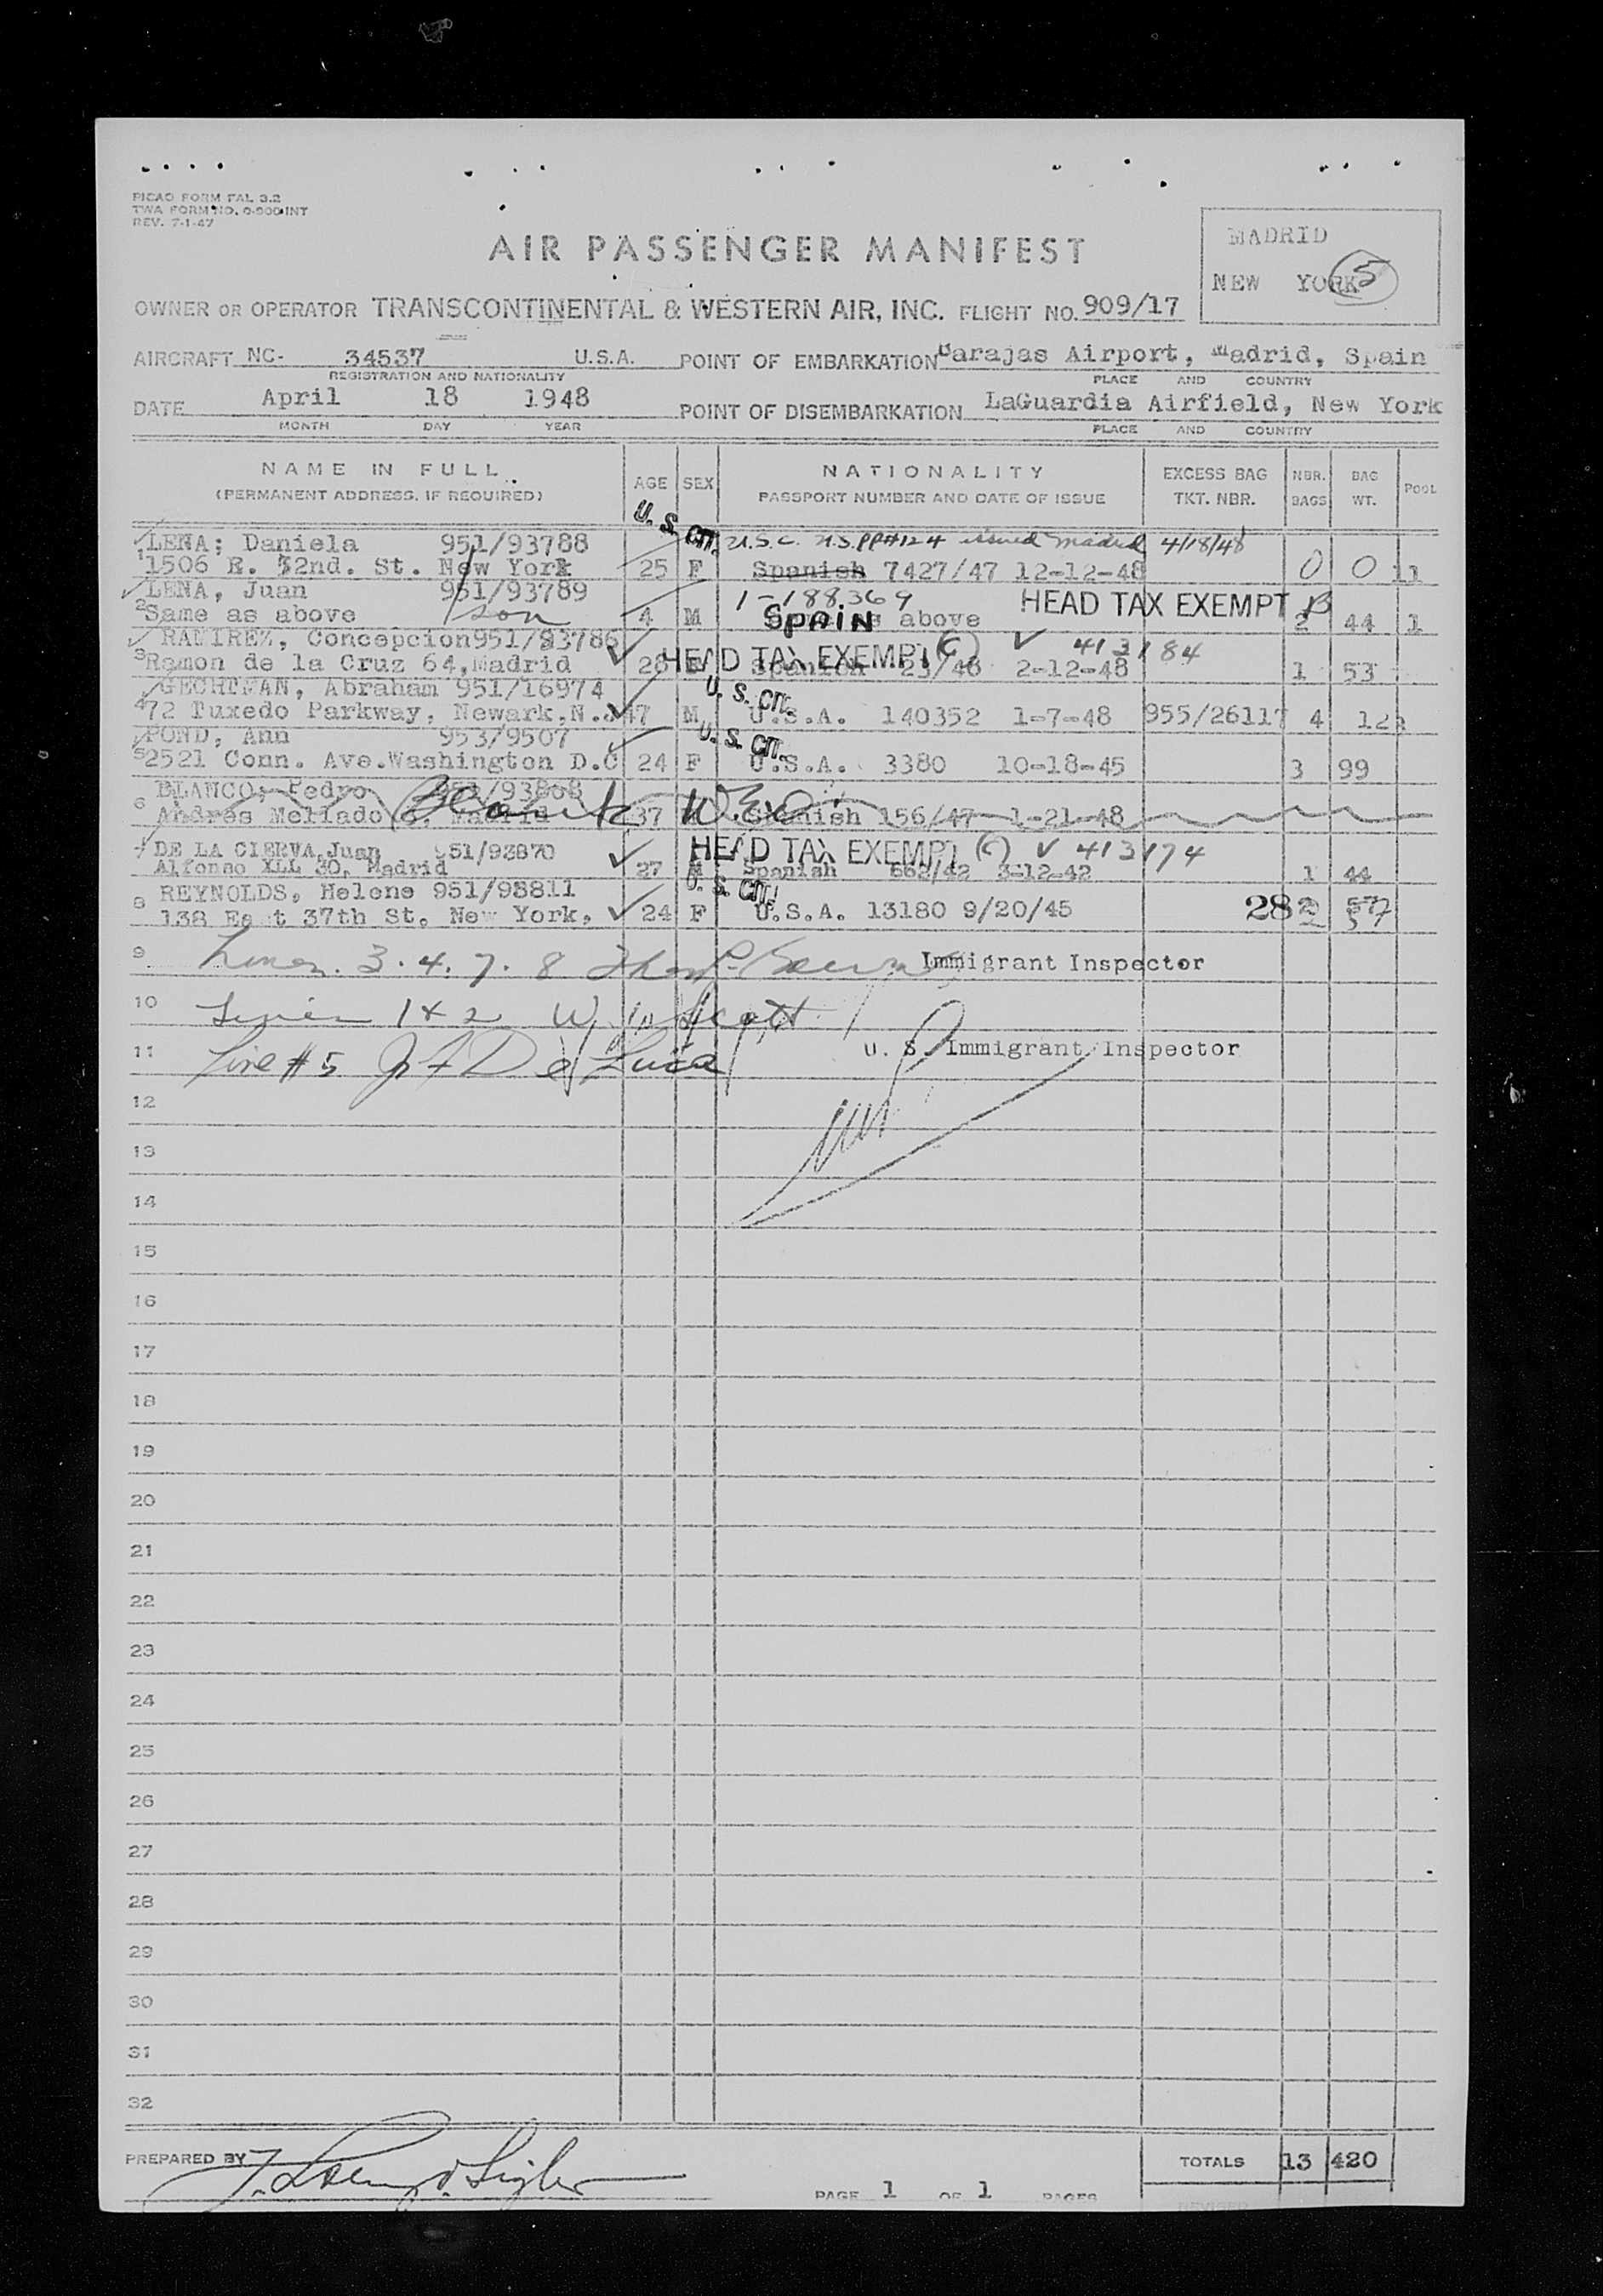 PICAO FORM FAL 3.2
TWA FORM NO. 0-900 INT
REV. 7-1-47
AIR PASSENGER MANIFEST
MADRID
NEW YORK 5
OWNER OR OPERATOR TRANSCONTINENTAL & WESTERN AIR, INC. FLIGHT NO. 909/17
AIRCRAFT NC- 34537 U.S.A. POINT OF EMBARKATION Barajas Airport, Madrid, Spain
REGISTRATION AND NATIONALITY PLACE AND COUNTRY
DATE April 18 1948 POINT OF DISEMBARKATION LaGuardia Airfield, New York
MONTH DAY YEAR PLACE AND COUNTRY
NAME IN FULL AGE SEX NATIONALITY EXCESS BAG NBR. BAG POOL
(PERMANENT ADDRESS, IF REQUIRED) PASSPORT NUMBER AND DATE OF ISSUE TKT. NBR. BAGS WT.
LENA; Daniela 951/93788 U. S. CIT. U.S.C. U.S.PP#124 issued Madrid 4/18/48
1 1506 E. 52nd. St. New York 25 F Spanish 7427/47 12-12-48 0 0 11
LENA, Juan 951/93789 1-188369 HEAD TAX EXEMPT B
2 Same as above son 4 M SPAIN above 2 44 1
RAMIREZ, Concepcion 951/93786 HEAD TAX EXEMPT (C) 413184
3 Ramon de la Cruz 64, Madrid 28 F Spanish 23/48 2-12-48 1 53
GECHTMAN, Abraham 951/16974 U. S. CIT.
4 72 Tuxedo Parkway, Newark, N.J 47 M U.S.A. 140352 1-7-48 955/26117 4 122
POND, Ann 953/9507 U. S. CIT.
5 2521 Conn. Ave. Washington D.C 24 F U.S.A. 3380 10-18-45 3 99
BLANCO; Pedro 951/93868
6 Andres Mellado 6, Madrid 37 M Spanish 156/47 1-21-48
7 DE LA CIERVA, Juan 951/93870 HEAD TAX EXEMPT (C) 413174
Alfonso XLL 30, Madrid 27 M Spanish 662/42 3-12-42 1 44
REYNOLDS, Helene 951/93811 U. S. CIT.
8 138 East 37th St. New York, 24 F U.S.A. 13180 9/20/45 28 2 57
9 Lines. 3. 4. 7. 8 Immigrant Inspector
10 Lines 1 & 2 W. Scott
11 Line #5 J F De Luca U. S. Immigrant Inspector
12
13
14
15
16
17
18
19
20
21
22
23
24
25
26
27
28
29
30
31
32
PREPARED BY TOTALS 13 420
PAGE 1 OF 1 PAGES
REVISED